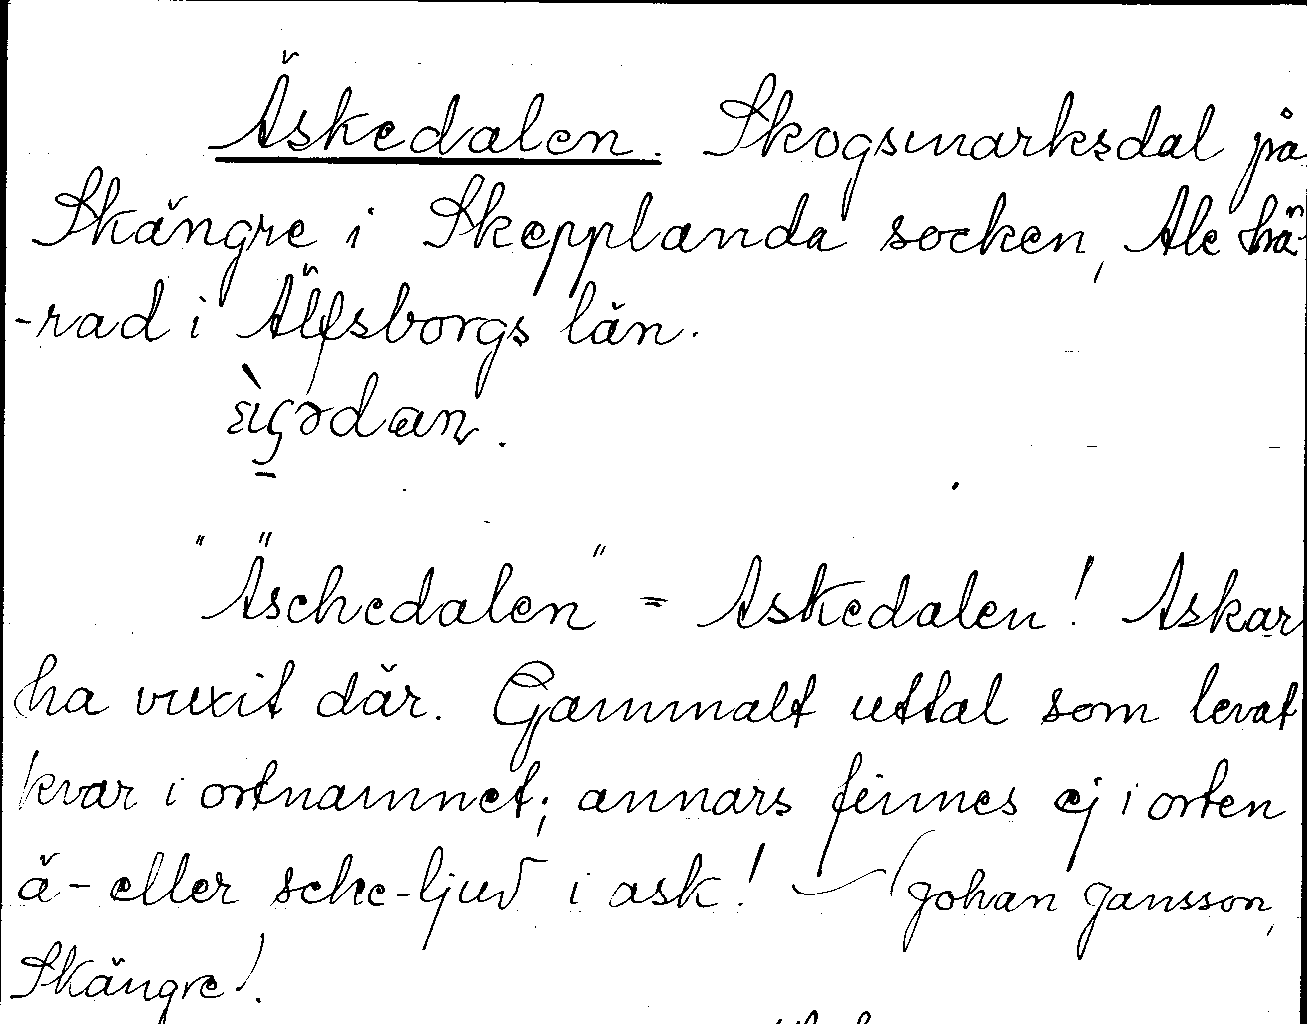 Äskedalen. Skogsmarksdal på
Skängre i Skepplanda socken, Ale hä-
-rad i Älfsborgs län.
"Äschedalen" = Askedalen! Askar
ha vuxit där. Gammalt uttal som levat
kvar i ortnamnet; annars finnes ej i orten
ä- eller sche-ljud i ask! — (Johan Jansson,
Skängre!.